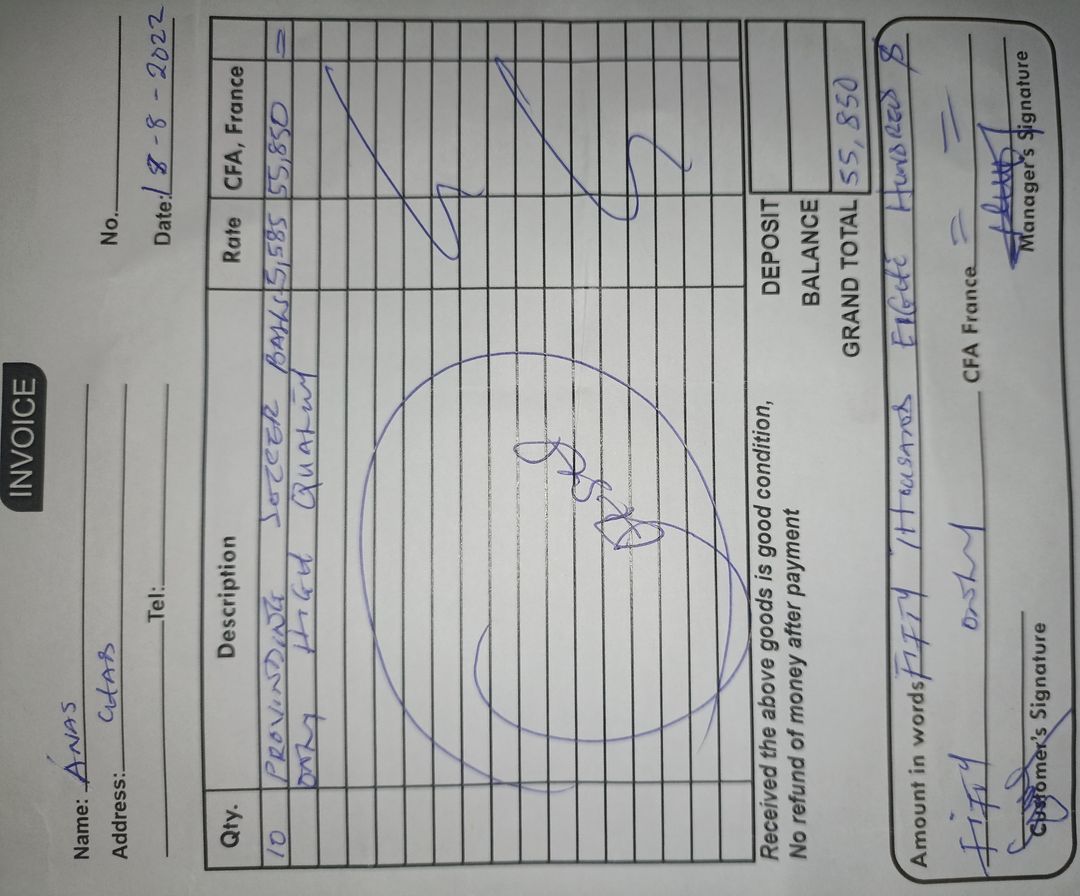 INVOICE
Name: ANAS
Address: CHAD
Tel:
No.
Date: 18-8-2022
Qty. Description Rate CFA, France
10 PROVINDING SOCCER BALLS 5,585 55,850 =
ONLY HIGH QUALITY
Received the above goods is good condition,
No refund of money after payment
DEPOSIT
BALANCE
GRAND TOTAL 55,850
Amount in words FIFTY THOUSAND EIGHT HUNDRED &
FIFTY ONLY CFA France = =
Customer's Signature
Manager's Signature